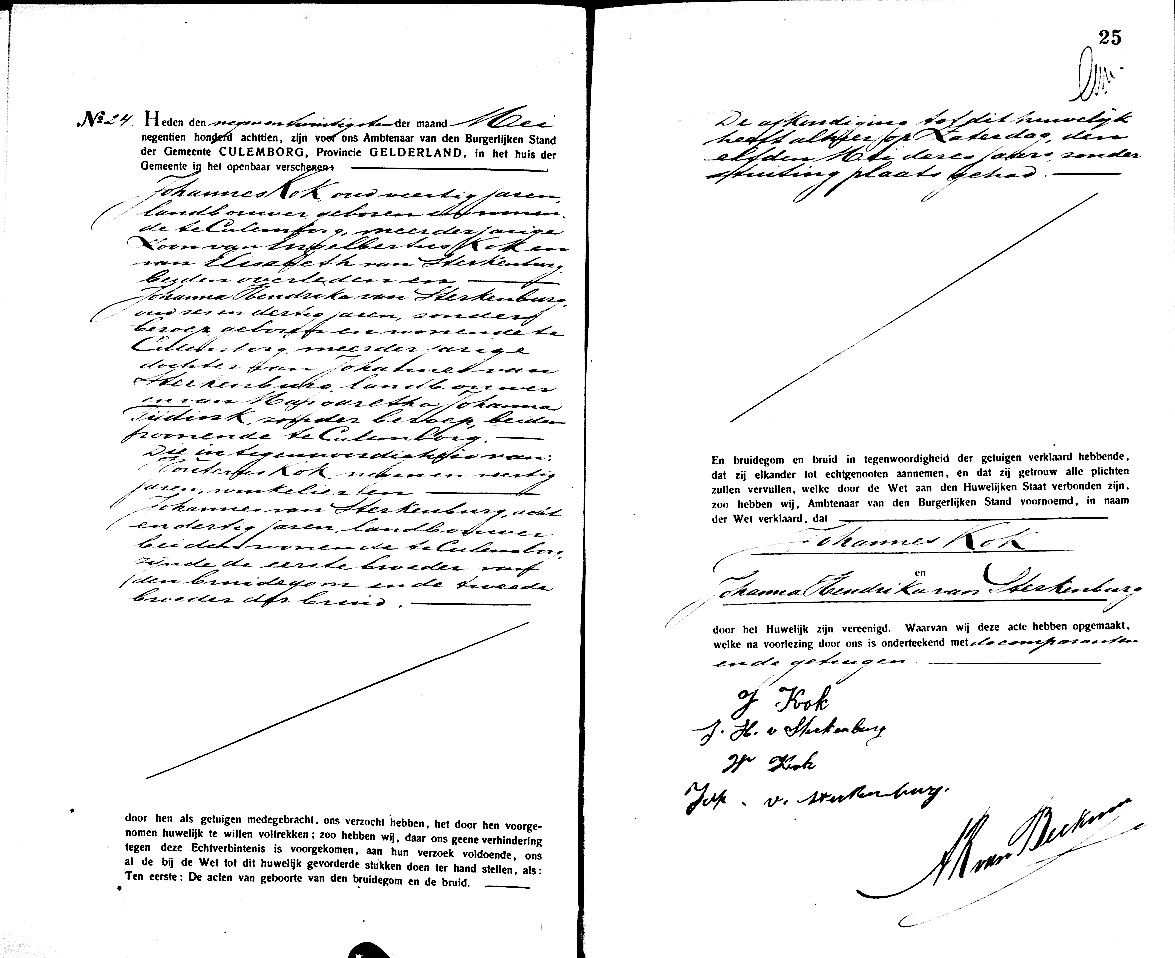 No 24. Heden den negenentwintigsten der maand Mei
negentien honderd achttien, zijn voor ons Ambtenaar van den Burgerlijken Stand
der Gemeente CULEMBORG, Provincie GELDERLAND, in het huis der
Gemeente in het openbaar verschenen:
Johannes Kok oud veertig jaren,
landbouwer geboren en wonen-
de te Culemborg, meerderjarige
zoon van Engelbertus Kok en
van Elisabeth van Sterkenburg,
beiden overleden en
Johanna Hendrika van Sterkenburg,
oud zes en dertig jaren, zonder
beroep, geboren en wonende te
Culemborg, meerderjarige
dochter van Johannes van
Sterkenburg, landbouwer
en van Margaretha Johanna
zonder beroep, beiden
wonende te Culemborg.
Die in tegenwoordigheid van:
Kok, en veertig
jaren, winkelier en
Johannes van Sterkenburg, acht
en dertig jaren landbouwer
beiden wonende te Culemborg,
zijnde de eerste broeder van
den bruidegom en de tweede
broeder der bruid.
door hen als getuigen medegebracht, ons verzocht hebben, het door hen voorge-
nomen huwelijk te willen voltrekken; zoo hebben wij, daar ons geene verhindering
tegen deze Echtverbintenis is voorgekomen, aan hun verzoek voldoende, ons
al de bij de Wet tot dit huwelijk gevorderde stukken doen ter hand stellen, als:
Ten eerste: De acten van geboorte van den bruidegom en de bruid.
25
De afkondiging tot dit huwelijk
heeft alhier op Zaterdag, den
elfden Mei dezes jaars, zonder
stuiting plaats gehad.
En bruidegom en bruid in tegenwoordigheid der getuigen verklaard hebbende,
dat zij elkander tot echtgenooten aannemen, en dat zij getrouw alle plichten
zullen vervullen, welke door de Wet aan den Huwelijken Staat verbonden zijn,
zoo hebben wij, Ambtenaar van den Burgerlijken Stand voornoemd, in naam
der Wet verklaard, dat
Johannes Kok
en
Johanna Hendrika van Sterkenburg
door het Huwelijk zijn vereenigd. Waarvan wij deze acte hebben opgemaakt,
welke na voorlezing door ons is onderteekend met de comparanten
en de getuigen.
J Kok
J. H. v Sterkenburg
W Kok
Joh. v. Sterkenburg.